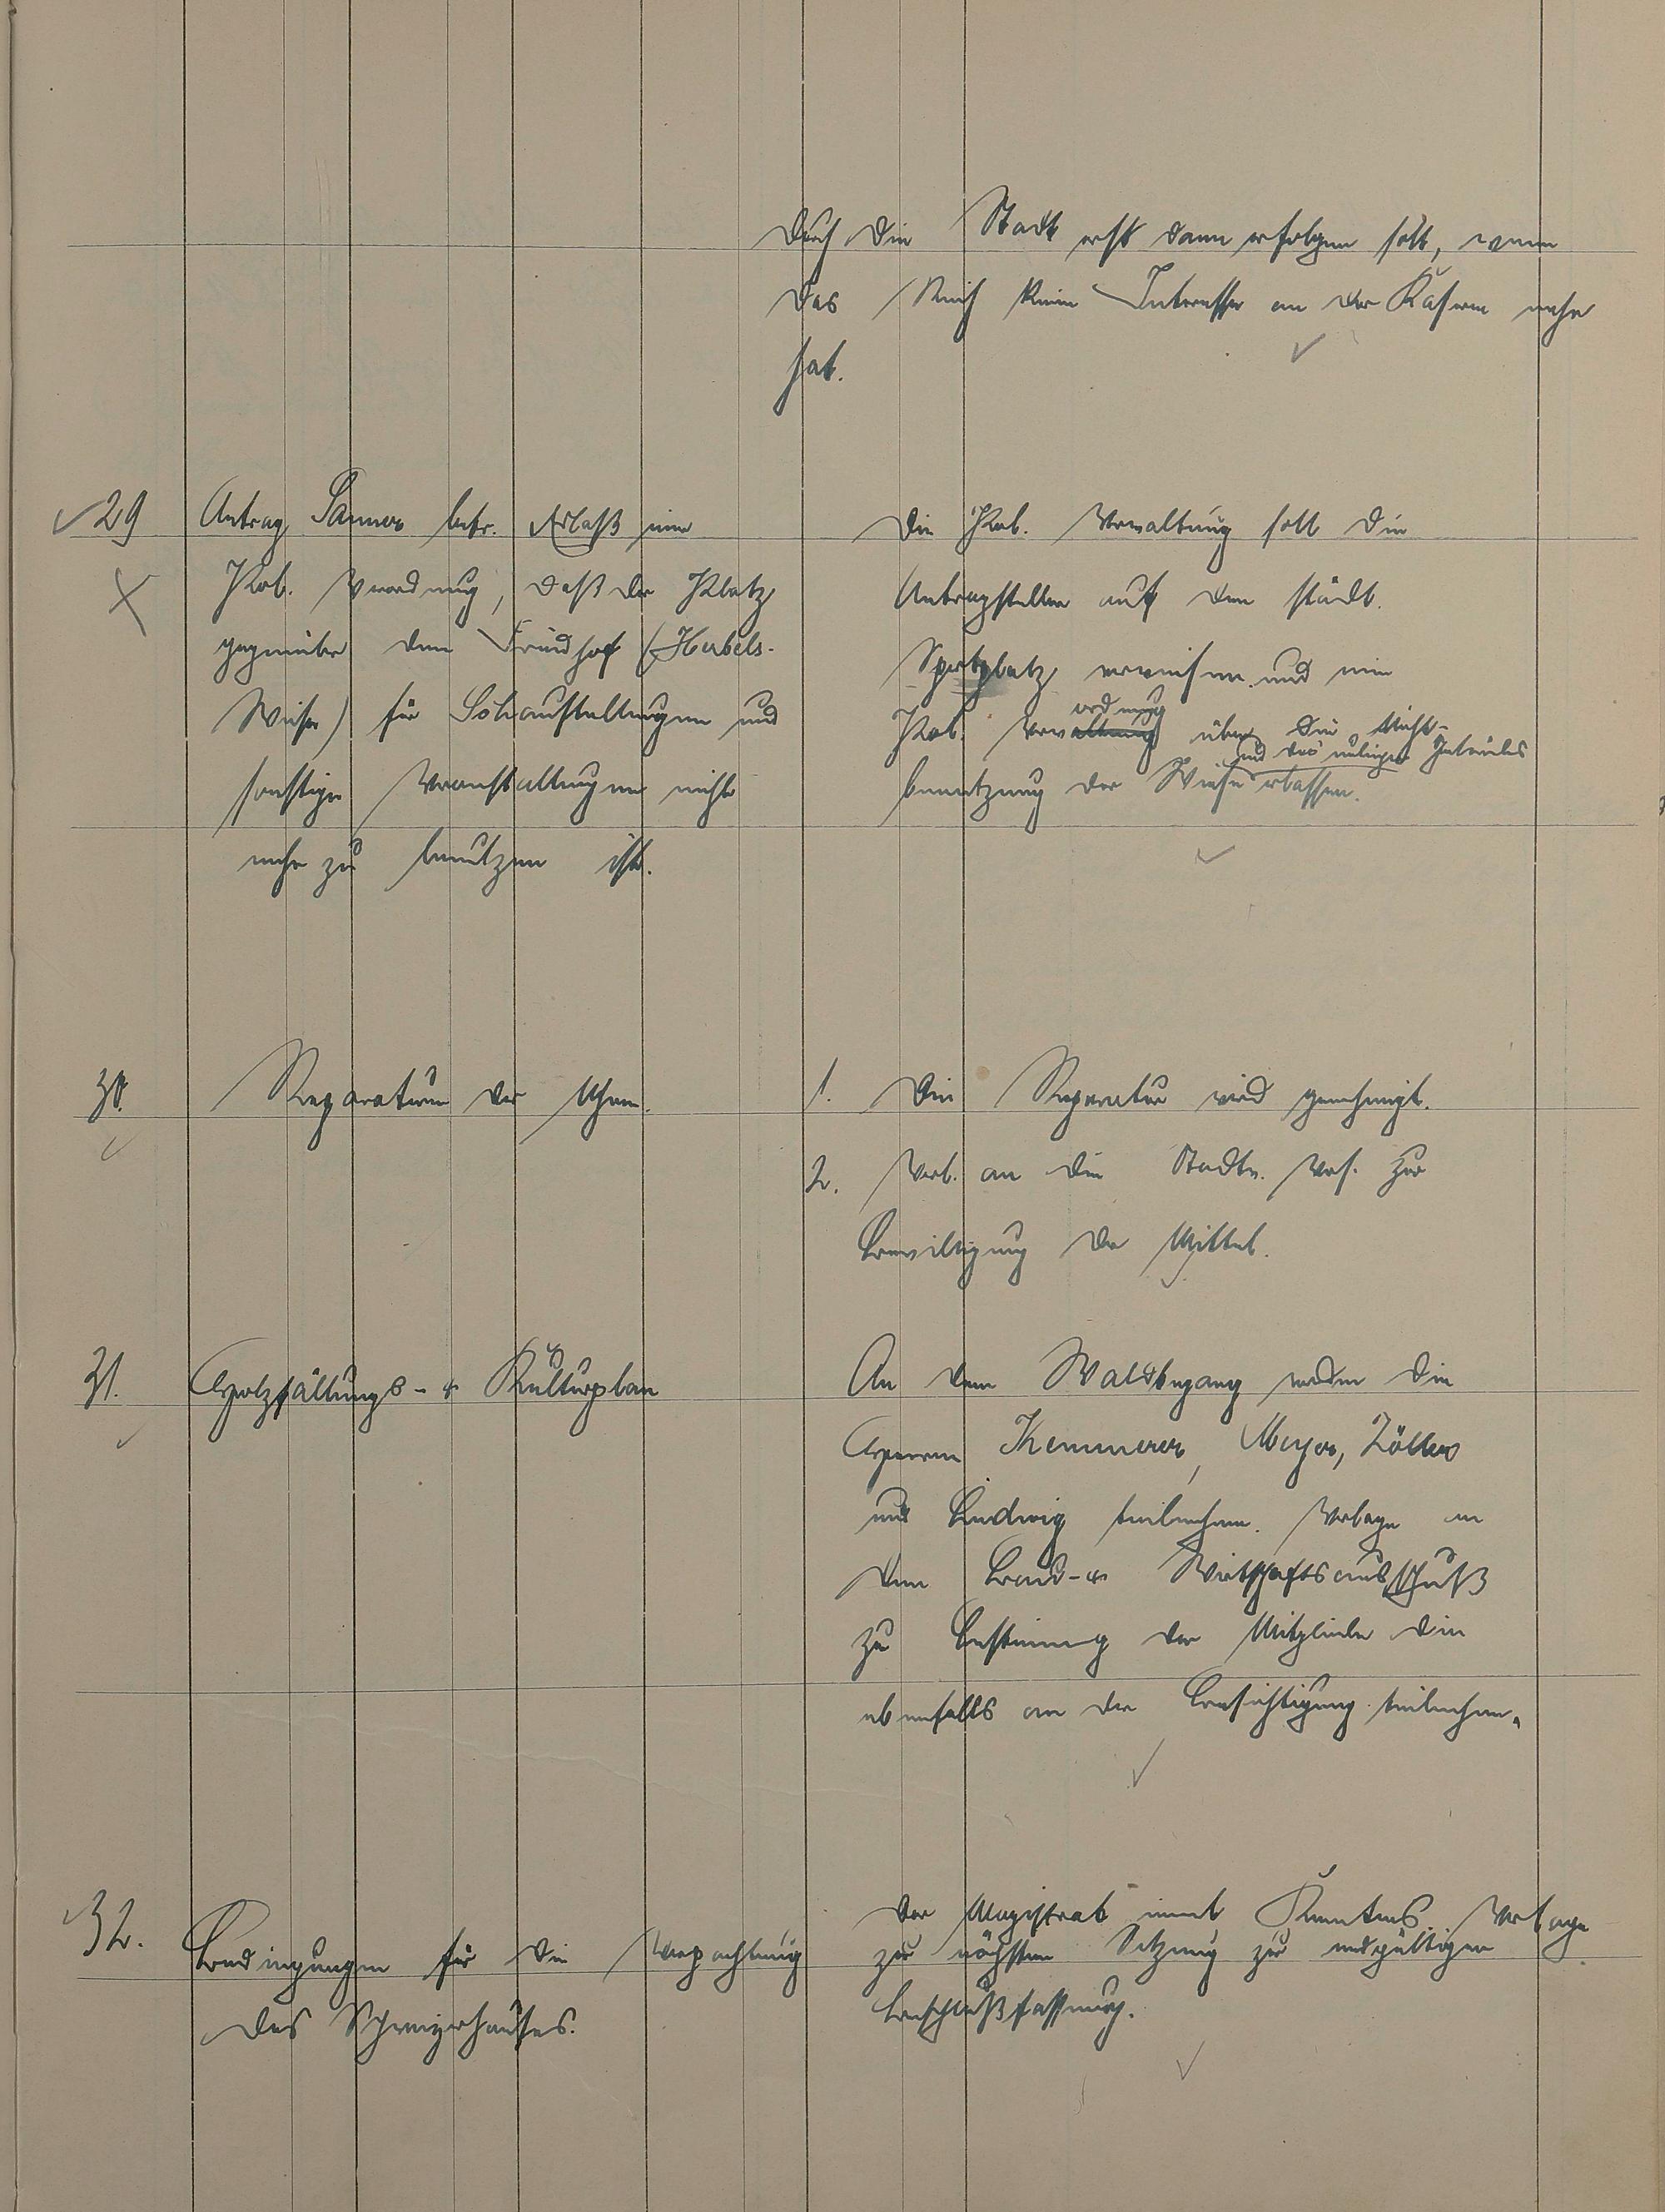 durch die Stadt erst dann erfolgen soll, wenn
das Reich kein Interesse an der Kaserne mehr
hat.
29 Antrag Sanner betr. Erlaß einer
Pol. Verordnung, daß der Platz
gegenüber dem Friedhof (Herbels-
Wiese) für Schaustellungen und
sonstige Veranstaltungen nicht
mehr zu benutzen ist.
Die Pol. Verwaltung soll die
Antragsteller auf den städt.
Sportplatz verweisen und eine
Pol. Verwaltung ordnung über die Nicht-
benutzung der Wiese und des Geländes erlassen.
30. Reparaturen der Uhren.
1. Die Reparatur wird genehmigt.
2. Vorl. an die Stadtv. Vers. zur
Bewilligung der Mittel.
31. Holzfällungs- & Kulturplan
An dem Waldbegang werden die
Herren Kemmerer, Meyer, Zöller
und Ludwig teilnehmen. Vorlage an
den Land- & Wirtschaftsausschuß
zu Bestimmung der Mitglieder die
ebenfalls an der Besichtigung teilnehmen.
32. Bedingungen für die Verpachtung
des Schweizerhauses.
Der Magistrat nimmt Kenntnis. Vorlage
zur nächsten Sitzung zur endgültigen
Beschlußfassung.